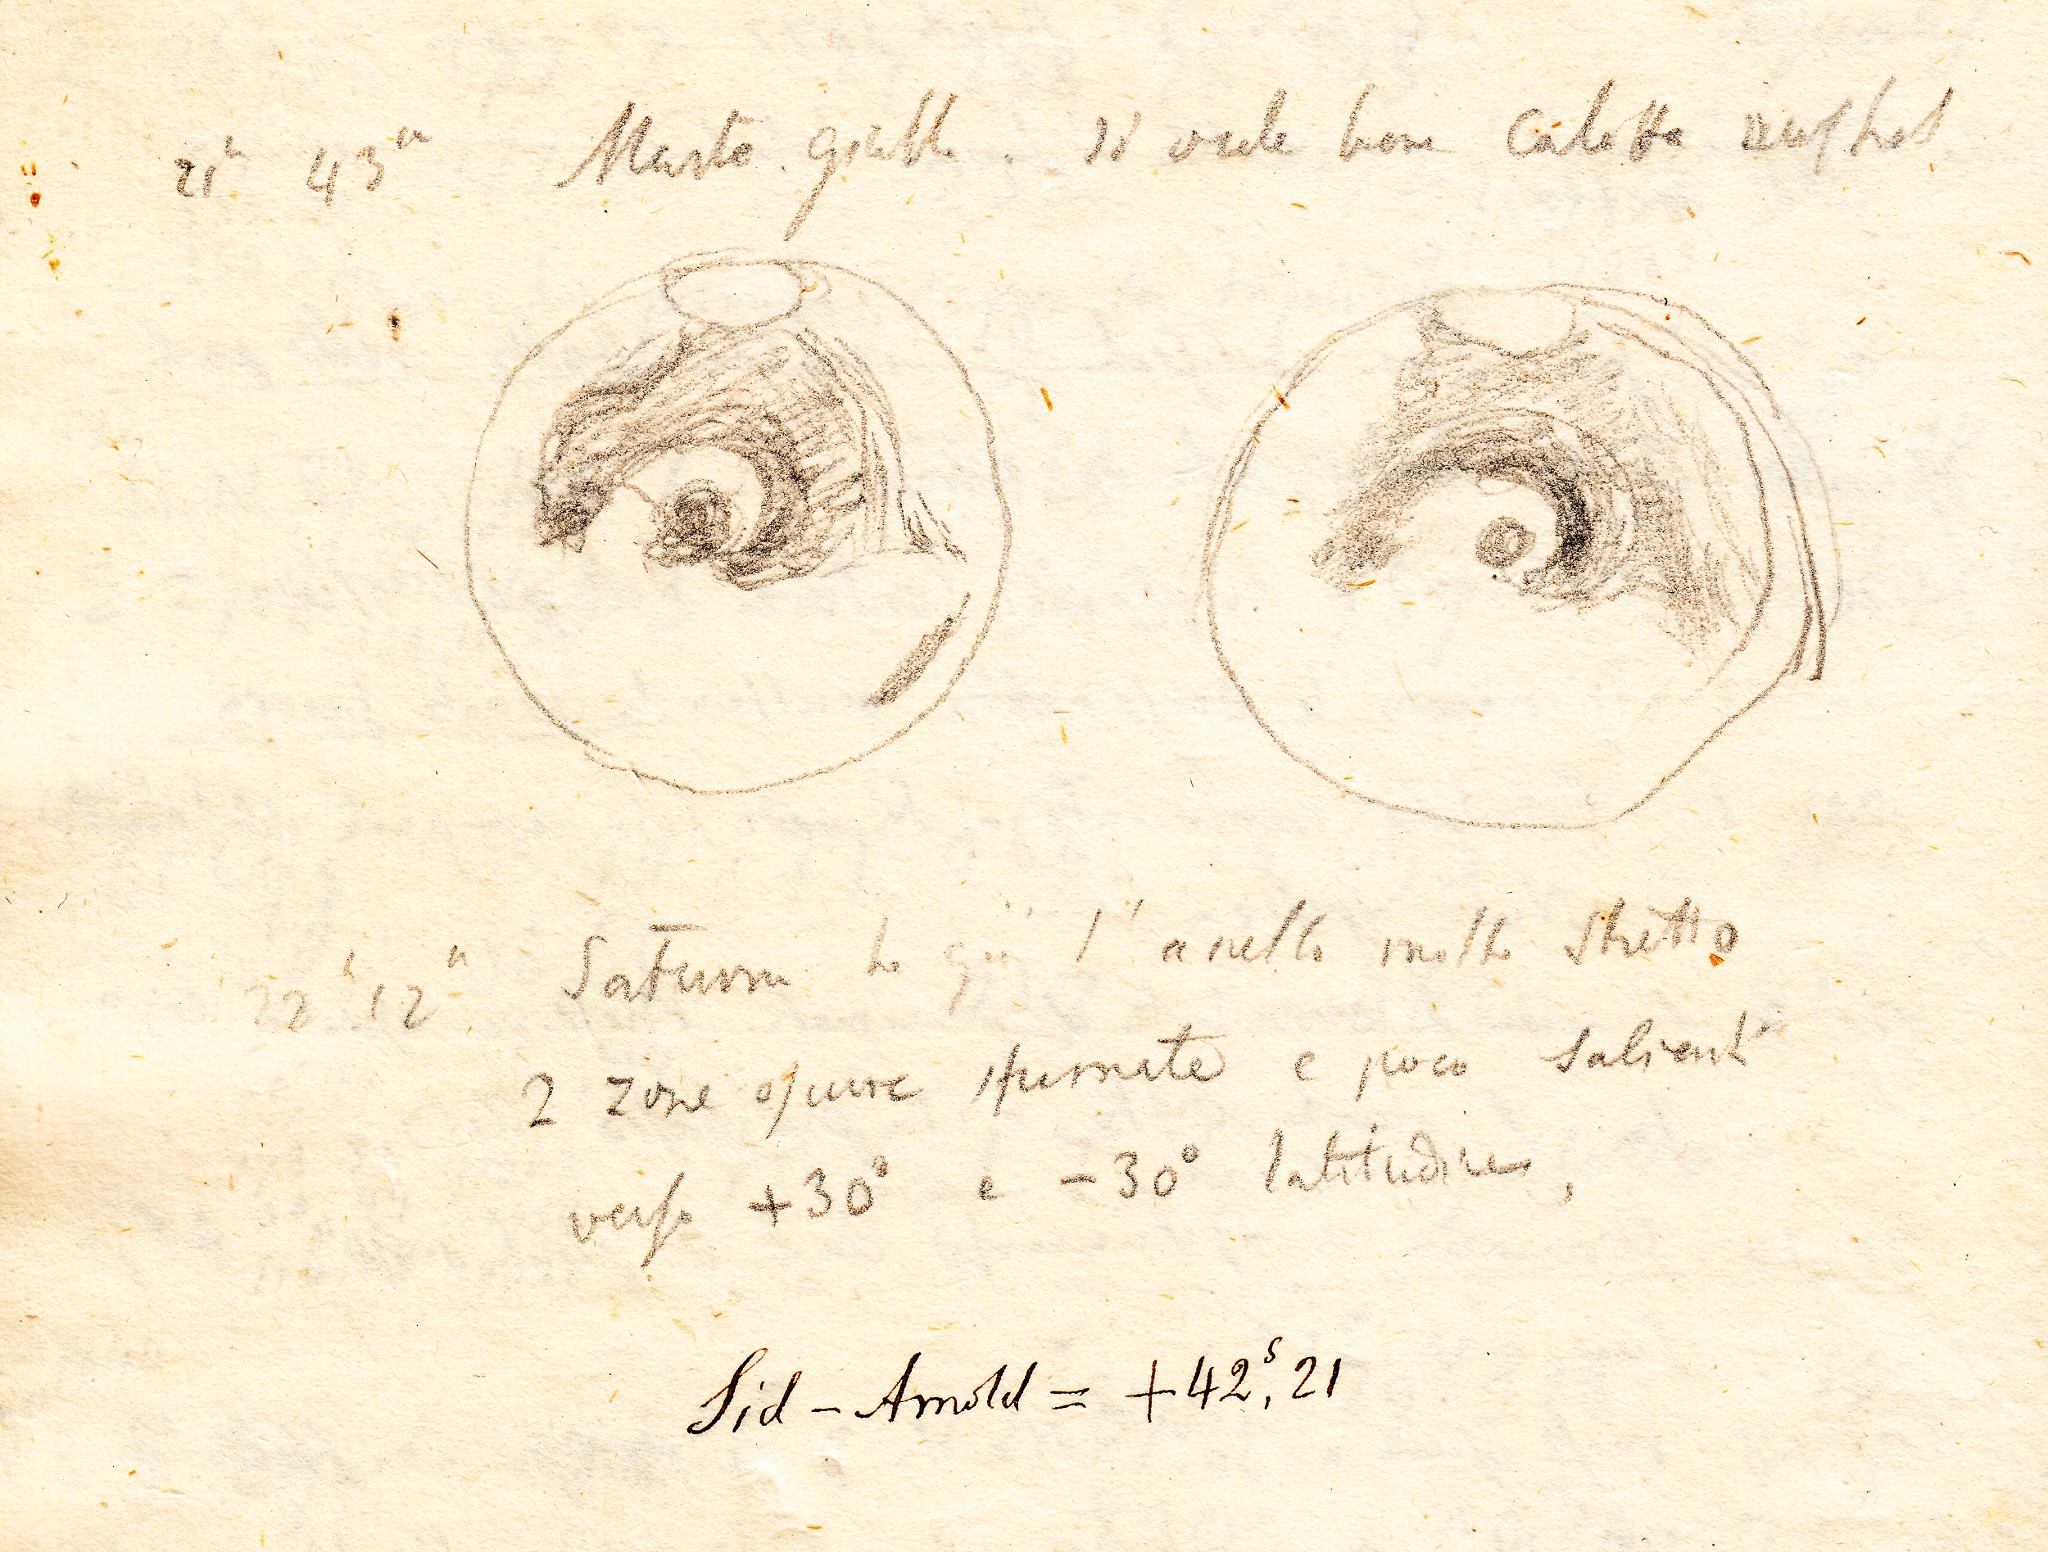 21ʰ 43ᵐ Marte gialle. Si vede bene Calotta australe
22ʰ 12ᵐ Saturno ha già l'anello molto stretto
2 zone oscure sfumate e poco salienti
verso +30° e -30° latitudine,
Sid - Arnold = +42ˢ,21